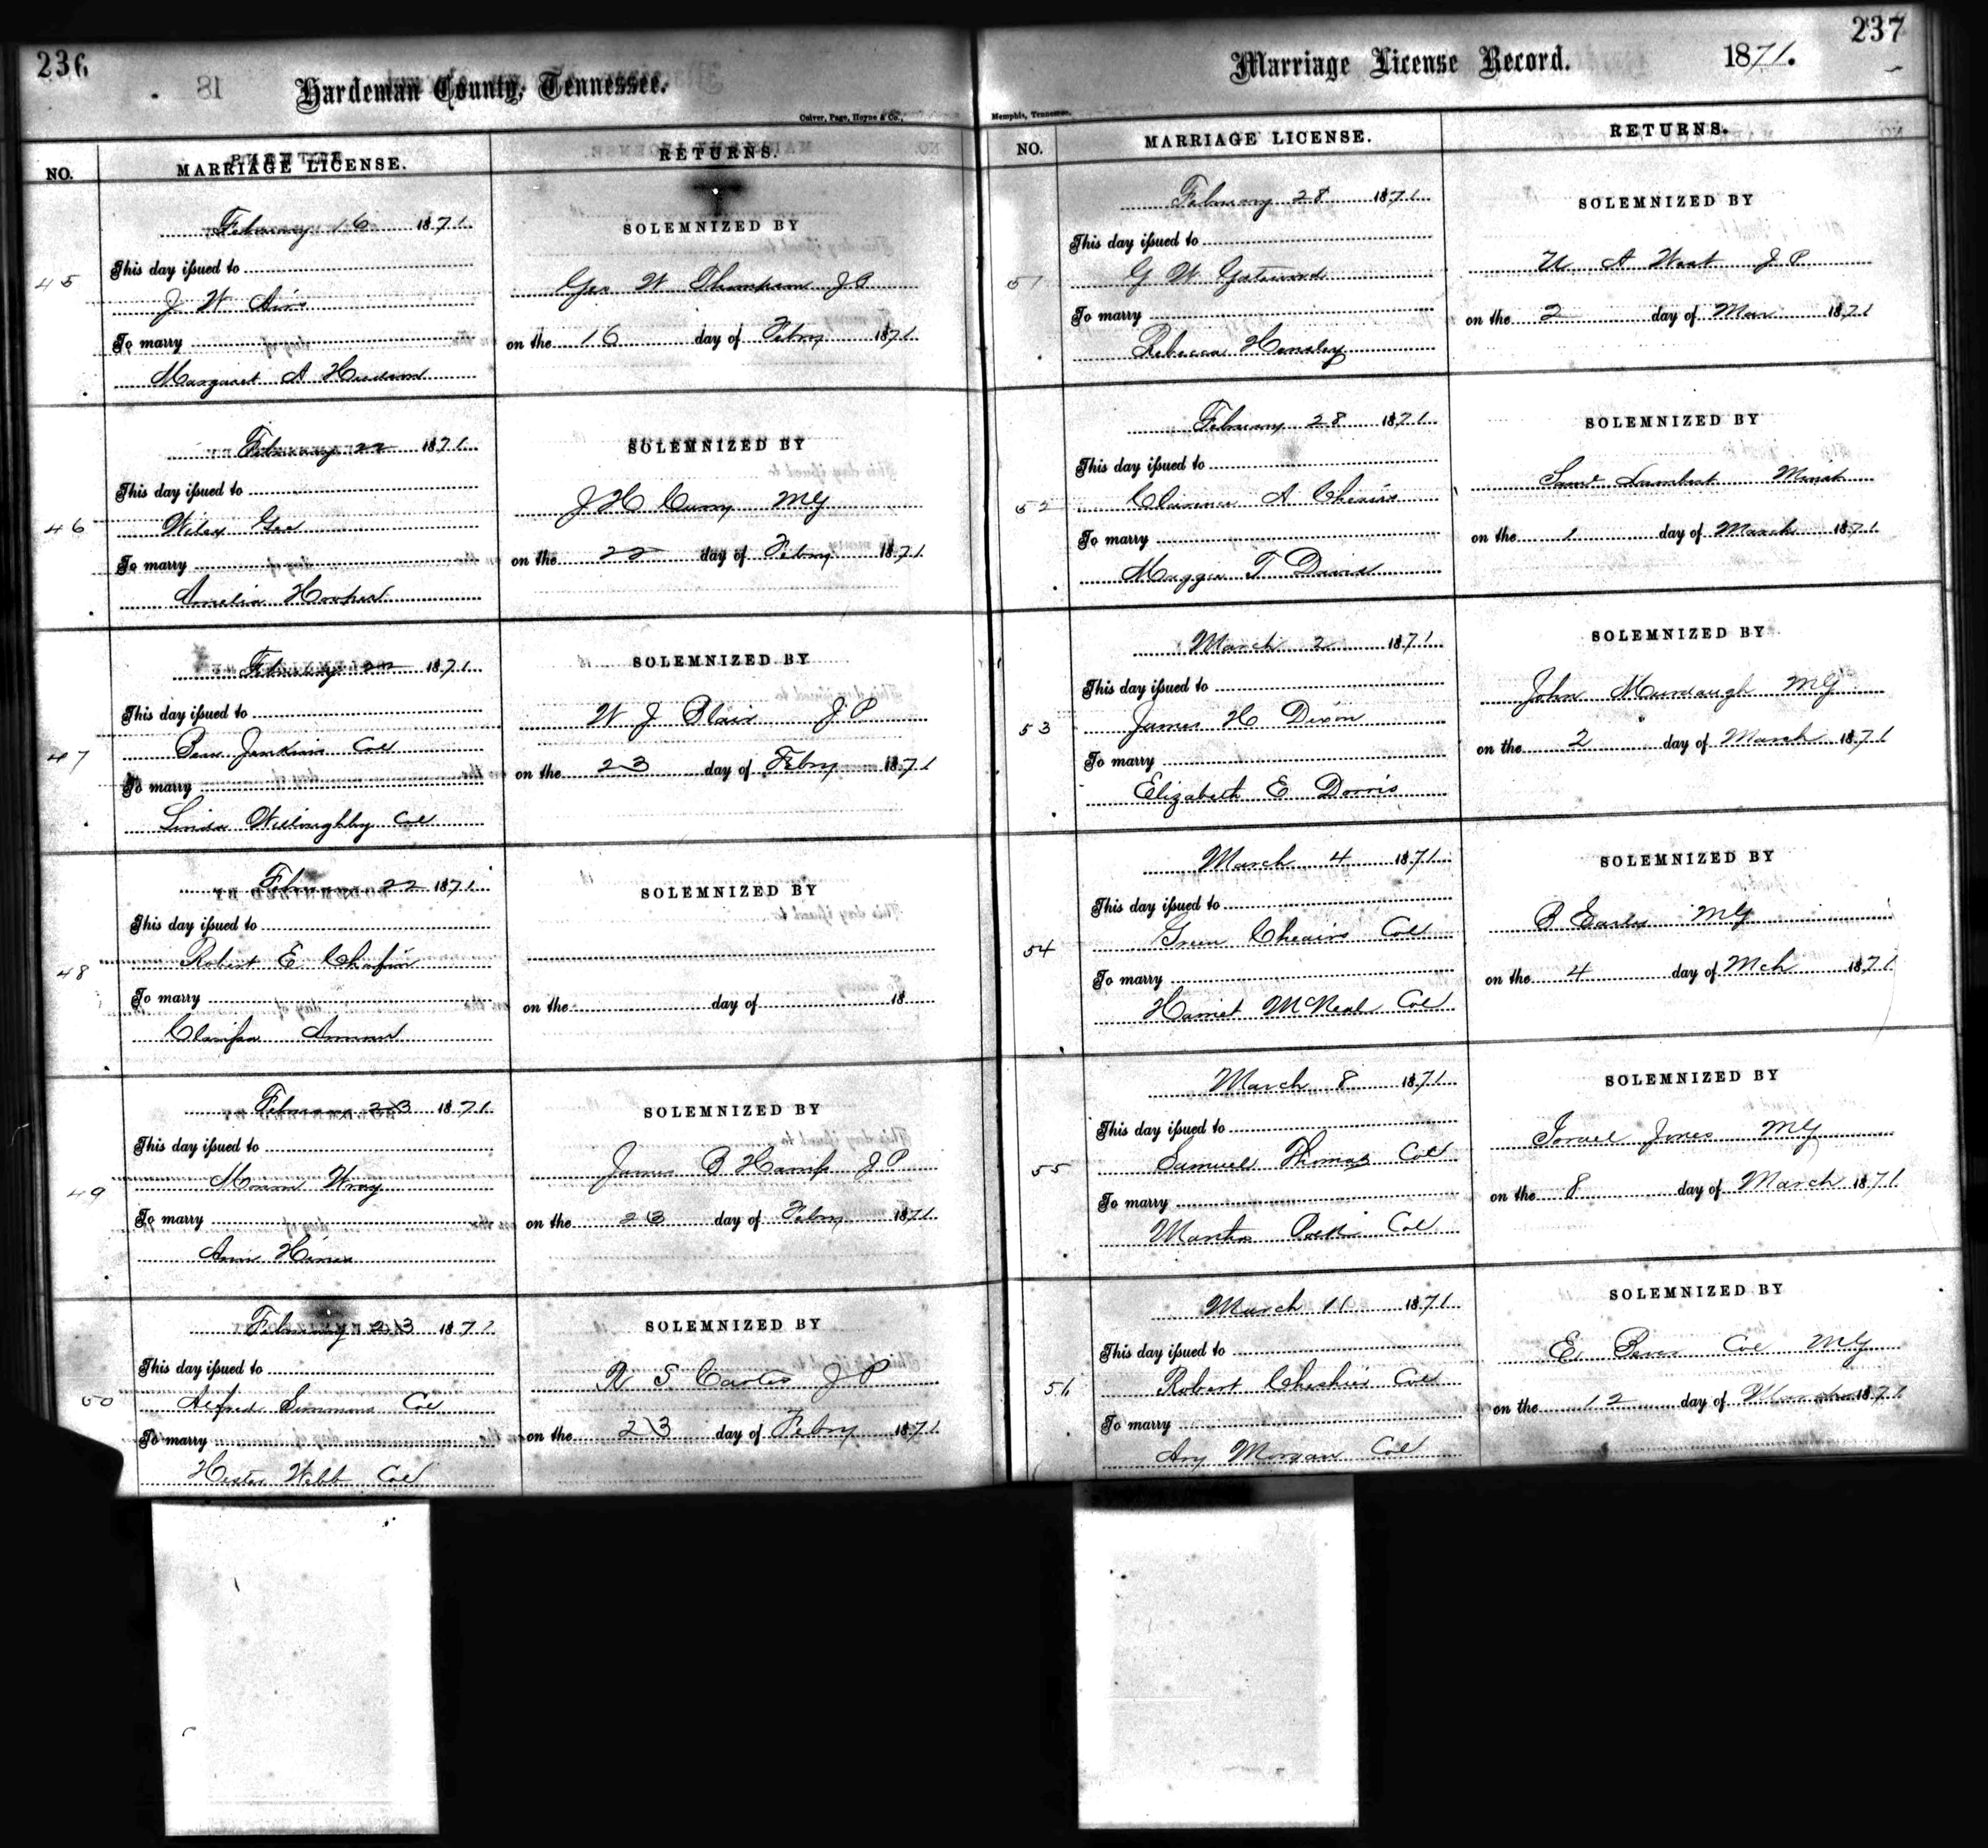 236
Hardeman County, Tennessee.
Culver, Page, Hoyne & Co.,
NO.
MARRIAGE LICENSE.
RETURNS.
45
February 16 1871
This day issued to
J W
To marry
Margaret A
SOLEMNIZED BY
Geo W Thompson J P
on the 16 day of Febry 1871
46
February 22 1871
This day issued to
Wiley Gee
To marry
Amelia Hooker
SOLEMNIZED BY
J H Curry MG
on the 22 day of Febry 1871
47
February 22 1871
This day issued to
Ben Jenkins Col
To marry
Linda Willoughby Col
SOLEMNIZED BY
W J Blair J P
on the 23 day of Febry 1871
48
February 22 1871
This day issued to
Robert E Chafin
To marry
Clarissa
SOLEMNIZED BY
on the day of 18
49
February 23 1871
This day issued to
Wray
To marry
Ann Hines
SOLEMNIZED BY
James B Harris J P
on the 23 day of Febry 1871
50
February 23 1871
This day issued to
Alfred Simmons Col
To marry
Hester Webb Col
SOLEMNIZED BY
R S Carter J P
on the 23 day of Febry 1871
Marriage License Record.
1871.
237
Memphis, Tennessee.
NO.
MARRIAGE LICENSE.
RETURNS.
51
February 28 1871
This day issued to
G W Gatewood
To marry
Rebecca Hensley
SOLEMNIZED BY
U A West J P
on the 2 day of Mar 1871
52
February 28 1871
This day issued to
Clarence A Cheairs
To marry
Maggie T David
SOLEMNIZED BY
Saml Lambert Minst
on the 1 day of March 1871
53
March 2 1871
This day issued to
James H Dixon
To marry
Elizabeth E Dorris
SOLEMNIZED BY
John Murdaugh MG
on the 2 day of March 1871
54
March 4 1871
This day issued to
Green Cheairs Col
To marry
Harriet McNeal Col
SOLEMNIZED BY
B Early MG
on the 4 day of Mch 1871
55
March 8 1871
This day issued to
Samuel Thomas Col
To marry
Martha Polk Col
SOLEMNIZED BY
Israel Jones MG
on the 8 day of March 1871
56
March 11 1871
This day issued to
Robert Cheshier Col
To marry
Any Morgan Col
SOLEMNIZED BY
E Col MG
on the 12 day of March 1871